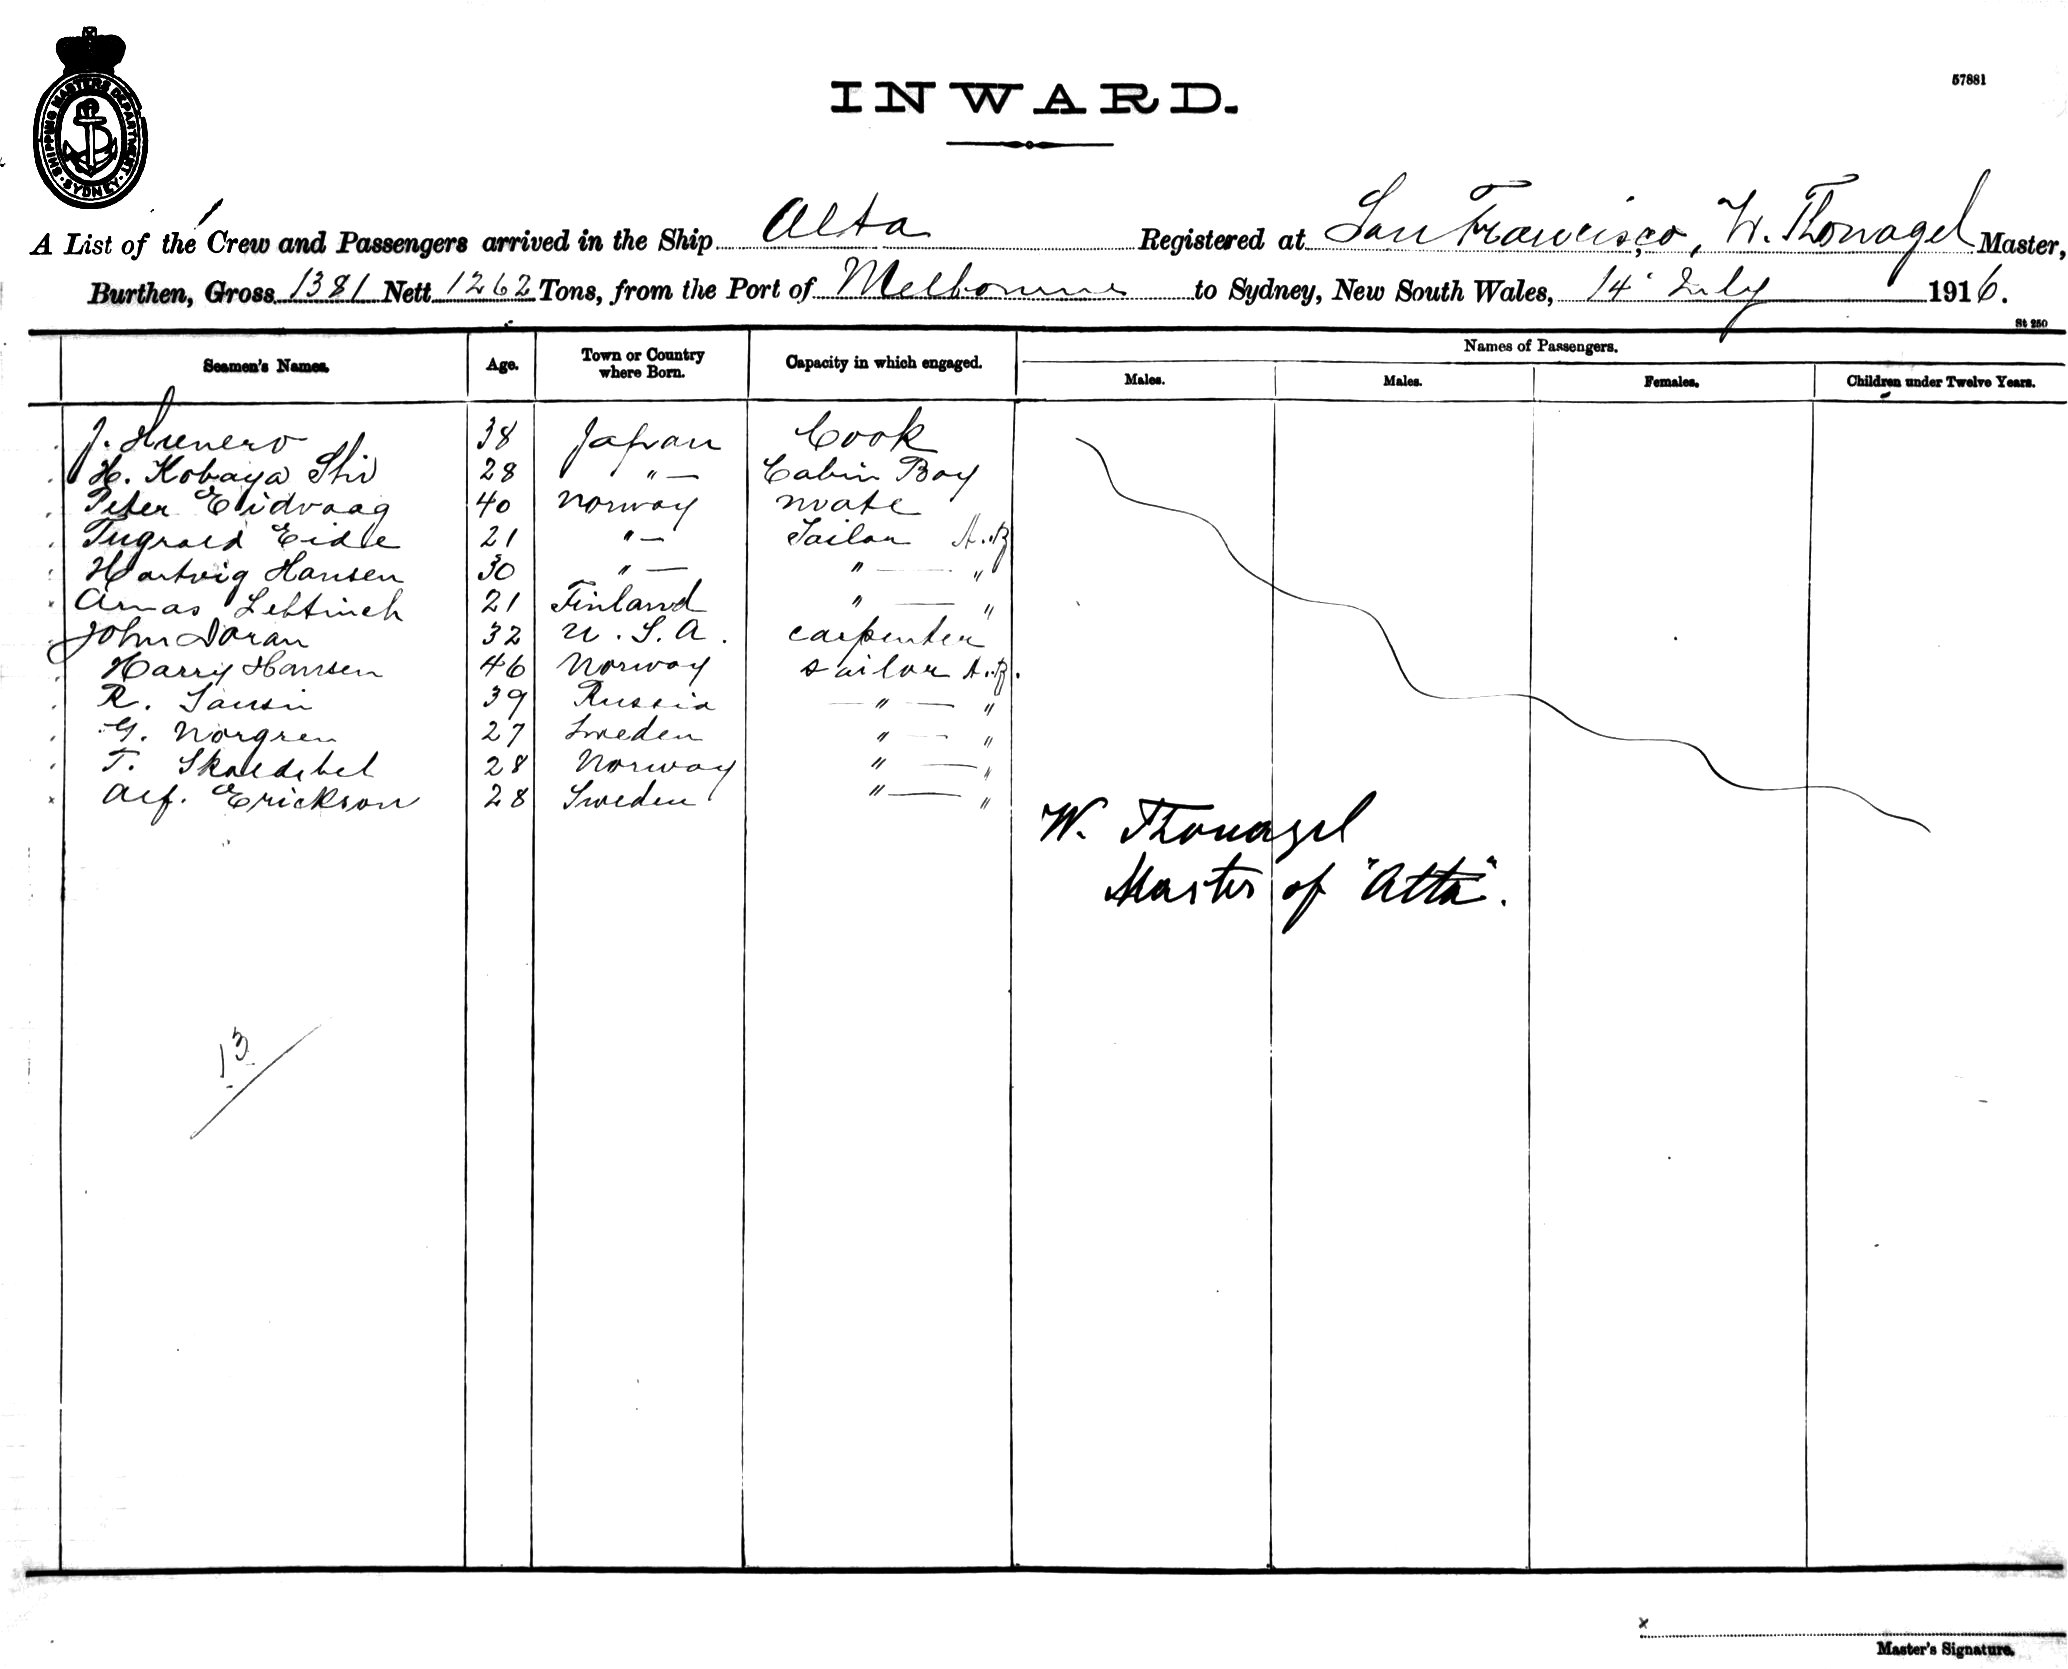 SHIPPING MASTERS DEPARTMENT
SYDNEY
INWARD.
57881
A List of the Crew and Passengers arrived in the Ship Alta Registered at San Francisco, W. Thonagel Master,
Burthen, Gross 1381 Nett 1262 Tons, from the Port of Melbourne to Sydney, New South Wales, 14 July 1916.
St 250
Seamen's Names. Age. Town or Country where Born. Capacity in which engaged. Names of Passengers.
Males. Males. Females. Children under Twelve Years.
J. 38 Japan Cook
H. Kobaya Shi 28 " — Cabin Boy
Peter Eidvaag 40 Norway mate
Eide 21 " — Sailor A.B
Hartvig Hansen 30 " — " — "
Arnas 21 Finland " — "
John Doran 32 U.S.A. carpenter
Harry Hansen 46 Norway sailor A.B.
R. 39 Russia — " — "
G. Norgren 27 Sweden " — "
T. 28 Norway " — "
Alf. Erickson 28 Sweden " — "
W. Thonagel
Master of "Alta".
13
x
Master's Signature.